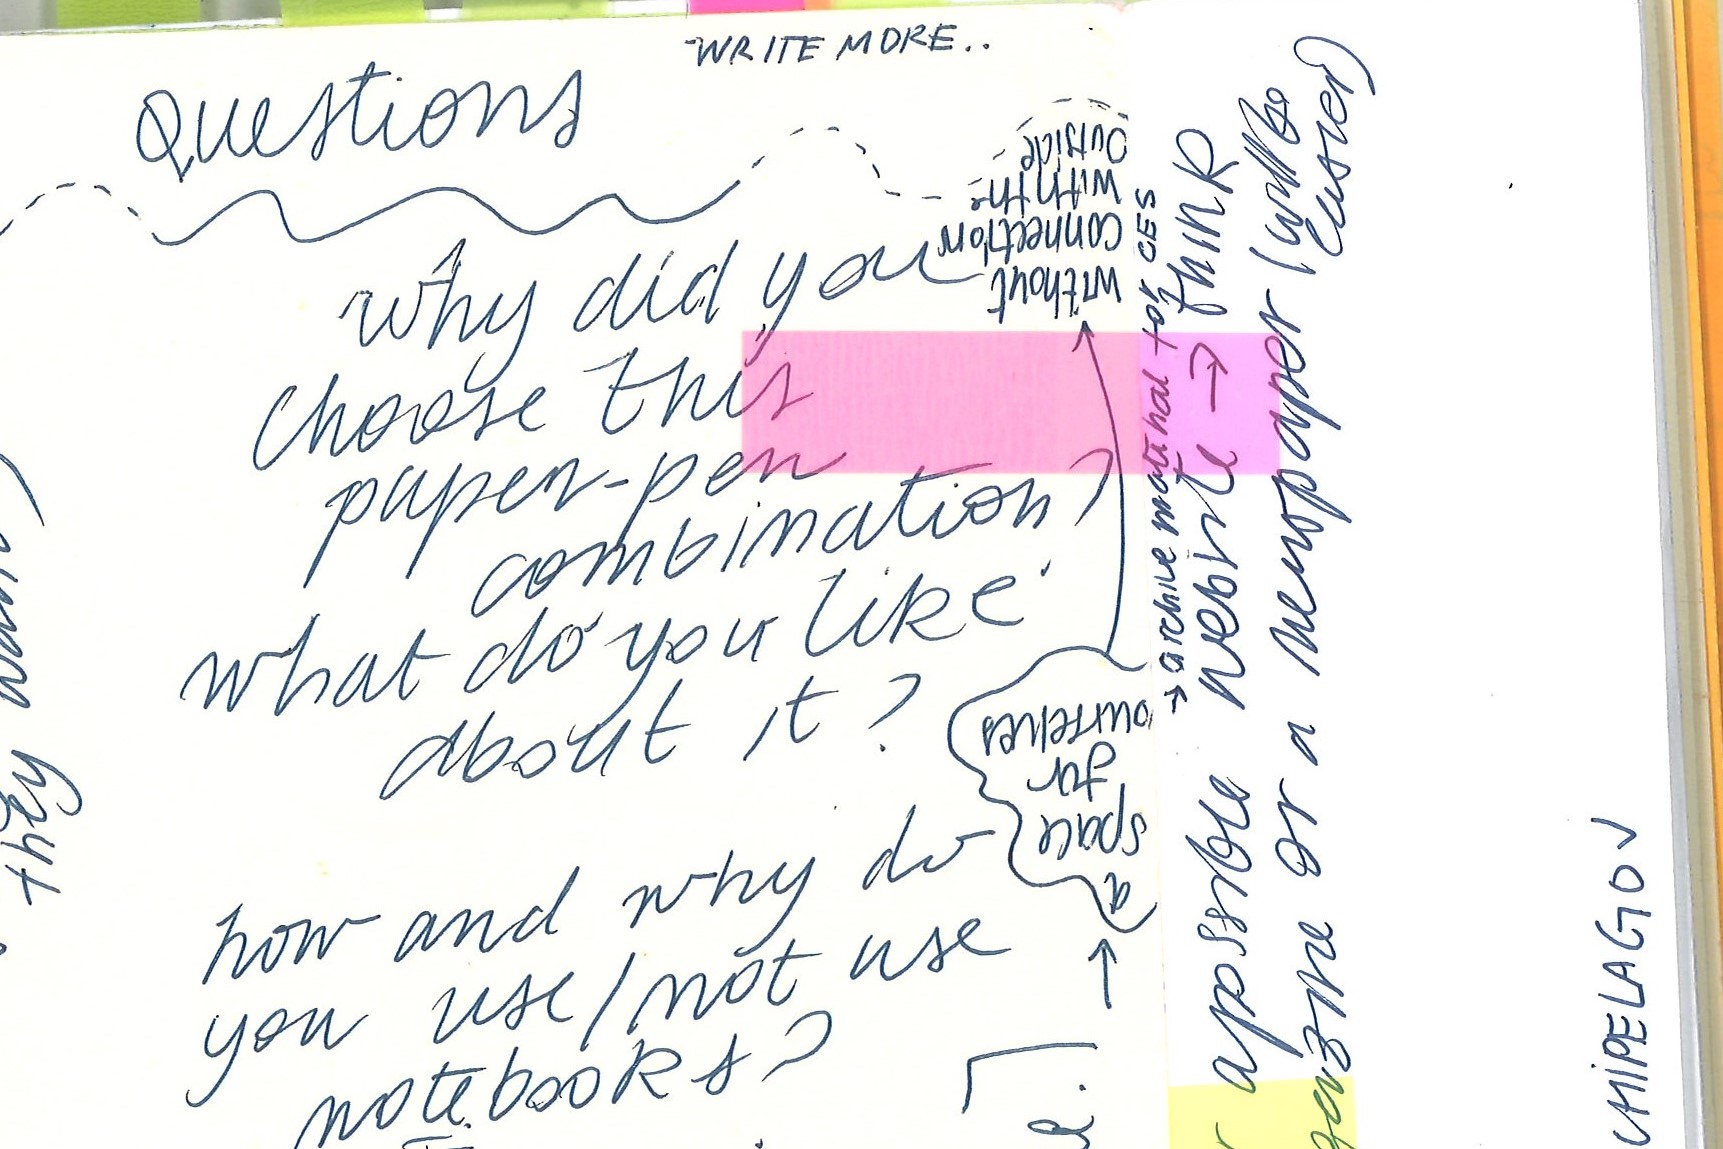 WRITE MORE..
Questions
why did you
choose this
paper-pen
combination?
what do you like
about it?
how and why do
you use/not use
notebooks?
without
connection
with the
outside
a
space
for
ourselves
→ archive material for CES
a possible website → think
or a newspaper (will be
easier)
they want